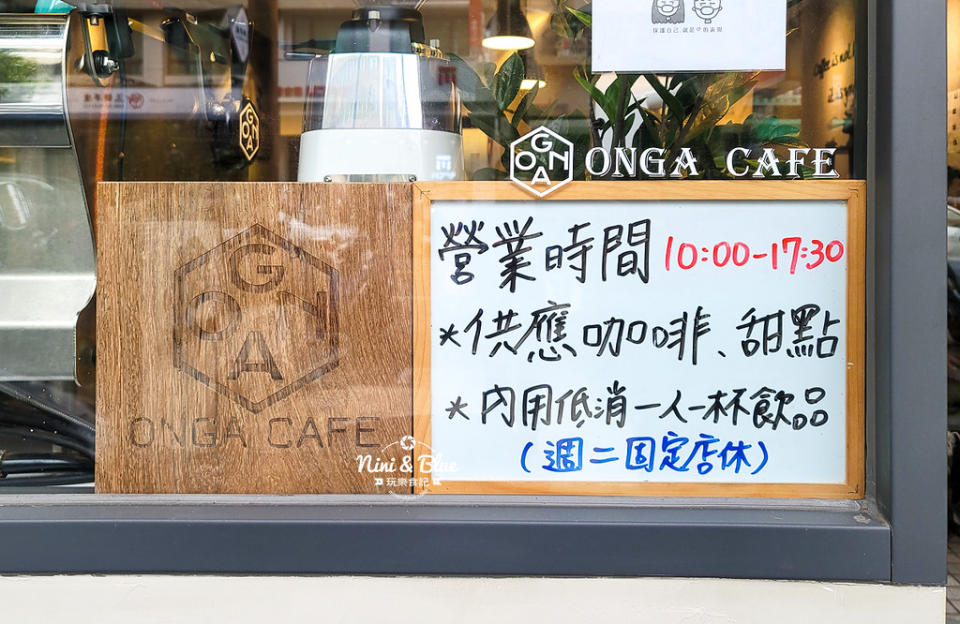 保護自己,就是中的表現
GONA
ONGA CAFE
營業時間 10:00-17:30
*供應咖啡、甜點
*內用低消一人一杯飲品
(週二固定店休)
GONA
ONGA CAFE
Nini & Blue
玩樂食記
GONA
Coffee is not